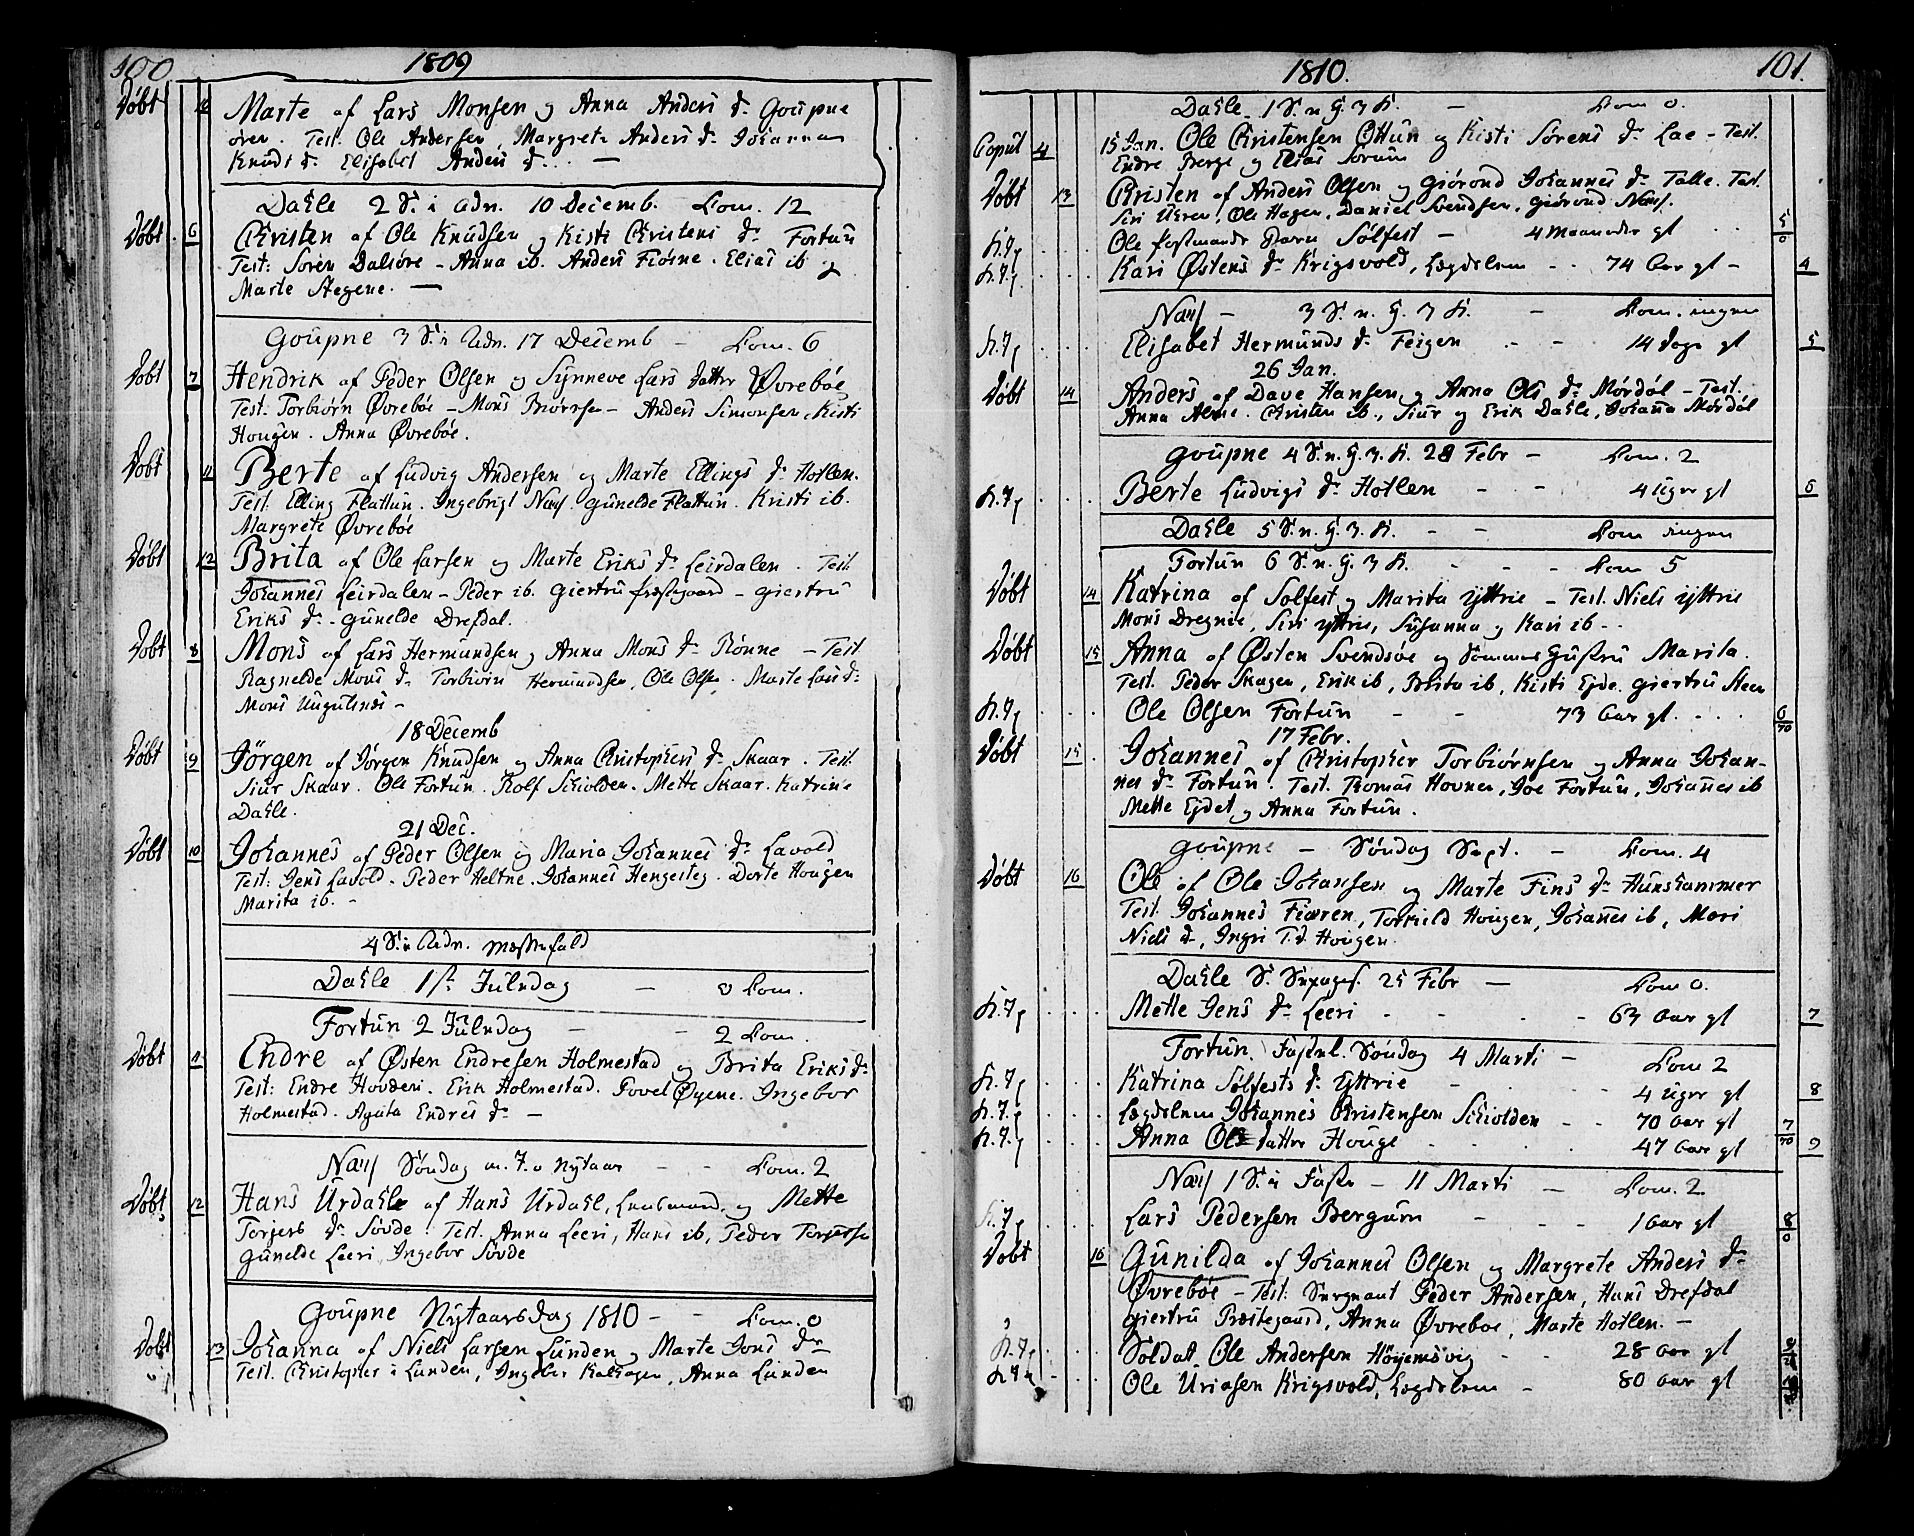 100 1809
Døbt 10 Marte af Lars Monsen og Anna Anders D. Goupne
øren. Test. Ole Andersen, Margrete Anders D. Johanna
Knuds D. Elisabet Anders D. —
Dahle 2 S. i Adv. 10 Decemb. Com. 12
Døbt 6 Christen af Ole Knudsen og Kisti Christens D. Fortun
Test: Soren Dalsøre - Anna ib. Anders Fiøsne. Elias ib og
Marte Stegene. —
Goupne 3 S. i Adv. 17 Decemb - Com. 6
Døbt 7 Hendrik af Peder Olsen og Synneve Lars datter Øvrebøe
Test: Torbiørn Øvrebøe - Mons Biørnsen - Anders Simonsen, Kisti
Hougen. Anna Øvrebøe.
Døbt 11 Berte af Ludvig Andersen og Marte Ellings D. Hotlen.
Test. Elling Flattun. Ingebrigt Næss. Gunelde Flattun. Kristi ib.
Margrete Øvrebøe
Døbt 12 Brita af Ole Larsen og Marte Eriks D. Leirdalen. Test.
Johannes Leirdalen - Peder ib. Giertru Præstegaard - Giertru
Eriks D. - Gunelde Drefdal.
Døbt 8 Mons af Lars Hermundsen og Anna Mons D. Rønne - Test
Ragnelde Mons D. Torbiørn Hermundsen, Ole Olsen. Marte
Mons
18 Decemb
Døbt 9 Jørgen af Jørgen Knudsen og Anna Christophers D. Skaar. Test.
Siur Skaar. Ole Fortun. Rolf Schiolden. Mette Skaar. Katrine
Dahle.
21 Dec.
Døbt 10 Johannes af Peder Olsen og Maria Johannes D. Lavold
Test: Jens Lavold. Peder Heltne. Johannes Hengesteg. Dorte Hougen
Marita ib. -
4 S. i Adv. Messefald
Dahle 1ste Juledag — 0 Com.
Fortun 2 Juledag - - 2 Com.
Døbt 11 Endre af Østen Endresen Holmestad og Brita Eriks D.
Test: Endre Hovden. Erik Holmestad. Povel Øyene. Ingebor
Holmestad. Agata Endres D. —
Næss Søndag m. J. o Nytaar - - Com. 2
Døbt 12 Hans Urdahl af Hans Urdahl, Lensmand, og Mette
Torjers D. Sovde. Test. Anna Leeri, Hans ib, Peder Torjersen
Gunelde Leeri Ingebor Sovde
Goupne Nytaarsdag 1810 - - Com. 0
Døbt 13 Johanna af Niels Larsen Lunden og Marte Jons D.
Test. Christopher i Lunden, Ingebor Kalhagen, Anna Lunden
1810. 101.
Dahle 1 S. n. H. 3 K. - Com 0.
Copul 4 15 Jan. Ole Christensen Ottun og Kisti Sørens D. Lae - Test.
Endre Berge og Elias Sorum
Døbt 13 Christen af Anders Olsen og Giørond Johannes D. Talle. Test.
Siri Uren, Ole Hagen, Daniel Svendsen, Giørond Næss.
Ole Barn Solfest - 4 Maaneder gl 5/0
Kari Østens D. Krigsvold, Lægdslem - - 74 Aar gl - 4
Næss - 3 S. n. H. 3 K. - Com. ingen
Elisabet Hermunds D. Feigen - - 14 dage gl 5
26 Jan.
Døbt 14 Anders af Dave Hansen og Anna Ols D. Mørdøl - Test.
Anna Christen ib., Siur og Erik Dahle, Johanna Mørdøl
Goupne 4 S. n. H. 3. K. 28 Febr - Com. 2
Berte Ludvigs D. Hotlen - - 4 Uger gl 6
Dahle 5 S. n. H. 3. K. - - Com ingen
Fortun 6 S. n. H. 3 K. - - - Com 5
Døbt 14 Katrina af Solfest og Marita Yttrie - Test. Niels Yttrie
Mons Dregnie, Siri Yttrie, Susanna og Kari ib -
Døbt 15 Anna af Østen Svendsøe og Marita.
Test. Peder Skagen, Erik ib, Brita ib, Kisti Eide. Giertru Steen
Ole Olsen Fortun - - 73 Aar gl. 6/70
17 Febr.
Døbt 15 Johannes af Christopher Torbiørnsen og Anna Johan-
nes D. Fortun. Test. Thomas Hovnen, Joe Fortun, Johannes ib
Mette Ejdet og Anna Fortun.
Goupne - Søndag Sept. - Com. 4
Døbt 16 Ole af Ole Johansen og Marte Fins D. Hunshammer
Test. Johannes Fiæren, Torkild Hougen, Johannes ib, Mari
Niels D., Ingri T. D. Hougen.
Dahle S. Sexages. 25 Febr — Com 0.
Mette Jens D. Leeri - - - 63 Aar gl 7
Fortun. Fastel. Søndag 4 Marti - Com 2
Katrina Solfests D. Yttrie - - 4 Uger gl 8
Lægdslem Johannes Christensen Schiolden - - 70 Aar gl 7/70
Anna Ols datter Houge - - 47 Aar gl 9
Næss 1 S. i Faste - 11 Marti - Com. 2
Lars Pedersen Bergum - - 1 Aar gl 8/0
Døbt 16 Gunilda af Johannes Olsen og Margrete Anders D.
Øvrebøe - Test: Sergeant Peder Andersen, Hans Drefdal
Giertru Præstegaard, Anna Øvreboe, Marte Hotlen. -
Soldat Ole Andersen Høyemsvig - - 28 Aar gl
Ole Uriasen Krigsvold, Lægdslem - 80 Aar gl